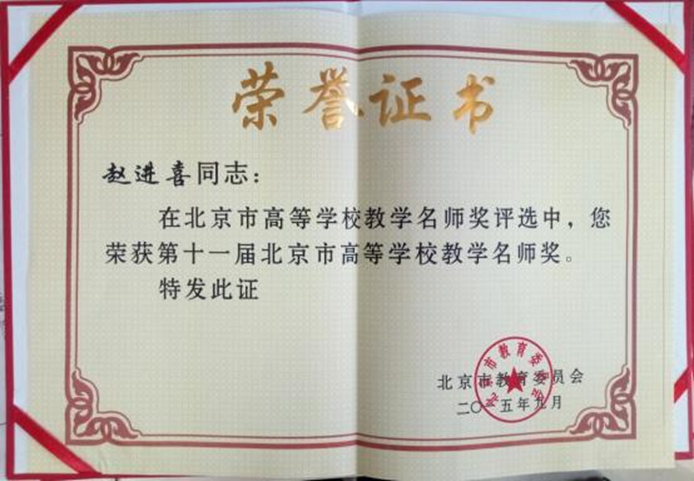 荣誉证书
赵进喜同志：
在北京市高等学校教学名师奖评选中，您
荣获第十一届北京市高等学校教学名师奖。
特发此证
北京市教育委员会
北京市教育委员会
二〇一五年九月